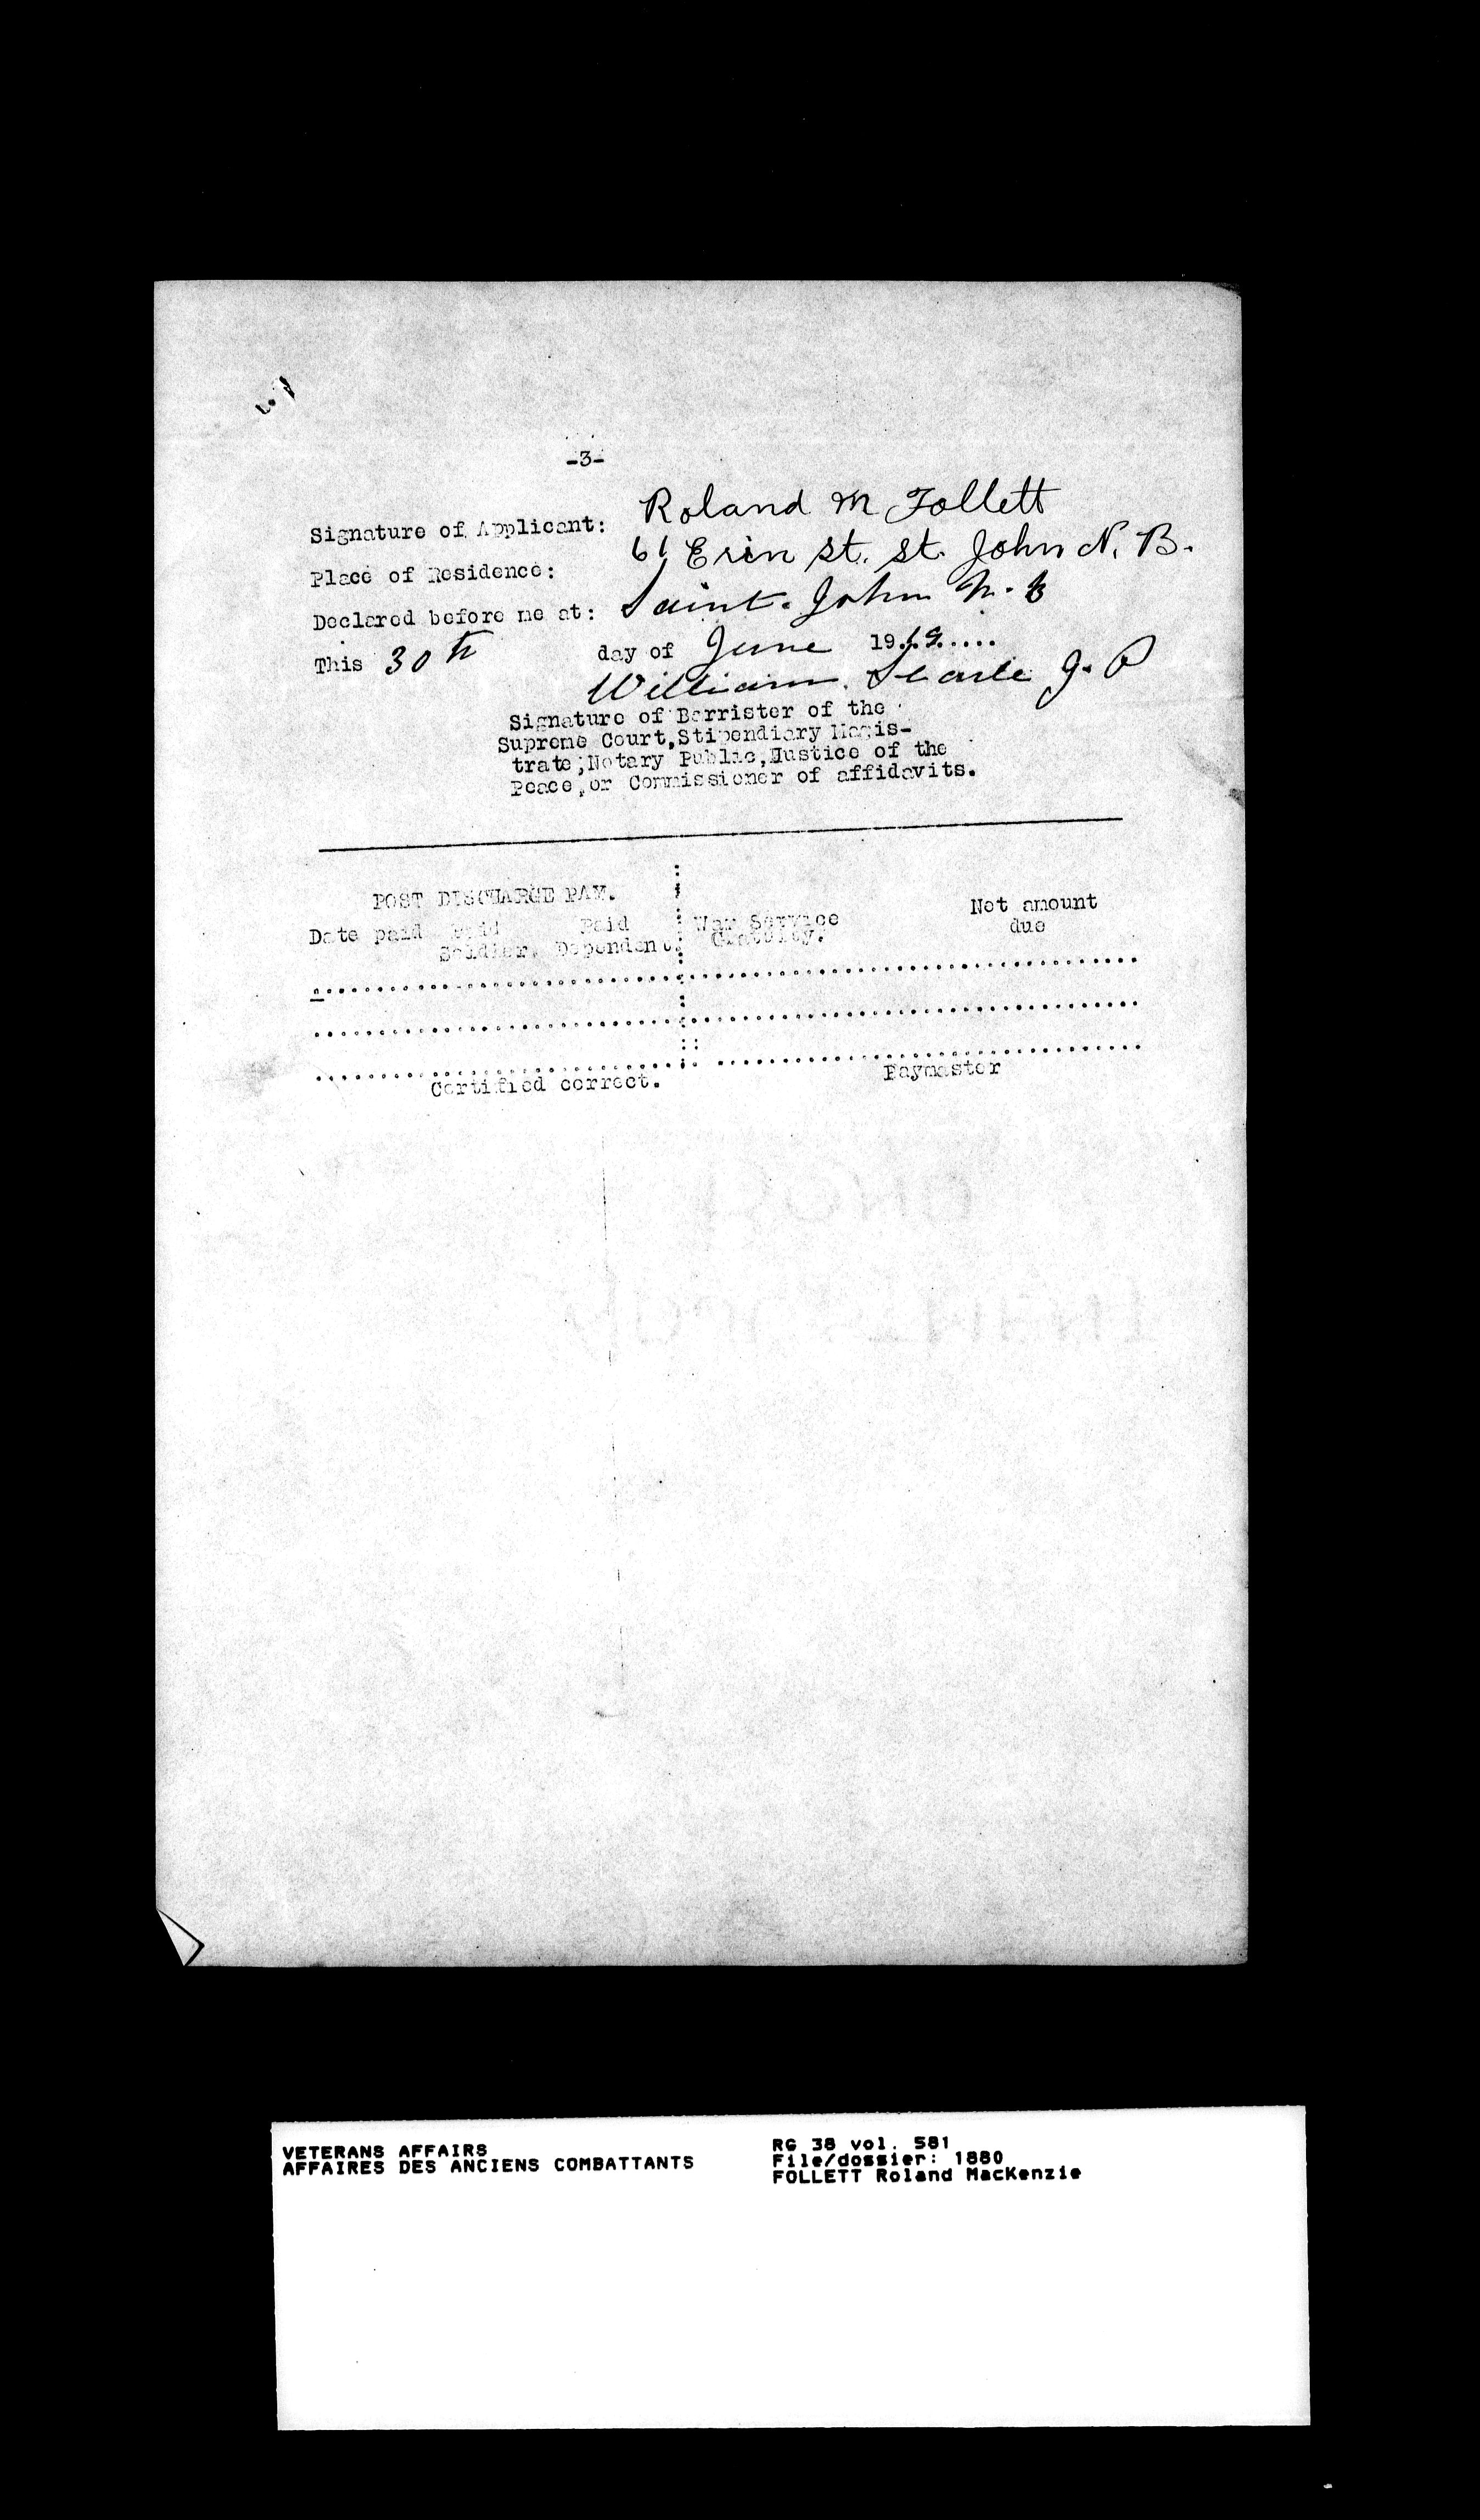 -3-
Signature of Applicant: Roland M Follett
Place of Residence: 61 Erin st. st. John N. B.
Declared before me at: Saint. John N. B
This 30th day of June 1919.....
William Searle J. P
Signature of Barrister of the
Supreme Court,Stipendiary Magis-
trate,Notary Public,Justice of the
Peace,or Commissioner of affidavits.
POST DISCHARGE PAY.
Date paid Paid Soldier. Paid Dependent. War Service Gratuity. Net amount due
Certified correct. Paymaster
VETERANS AFFAIRS
AFFAIRES DES ANCIENS COMBATTANTS
RG 38 vol. 581
File/dossier: 1880
FOLLETT Roland MacKenzie